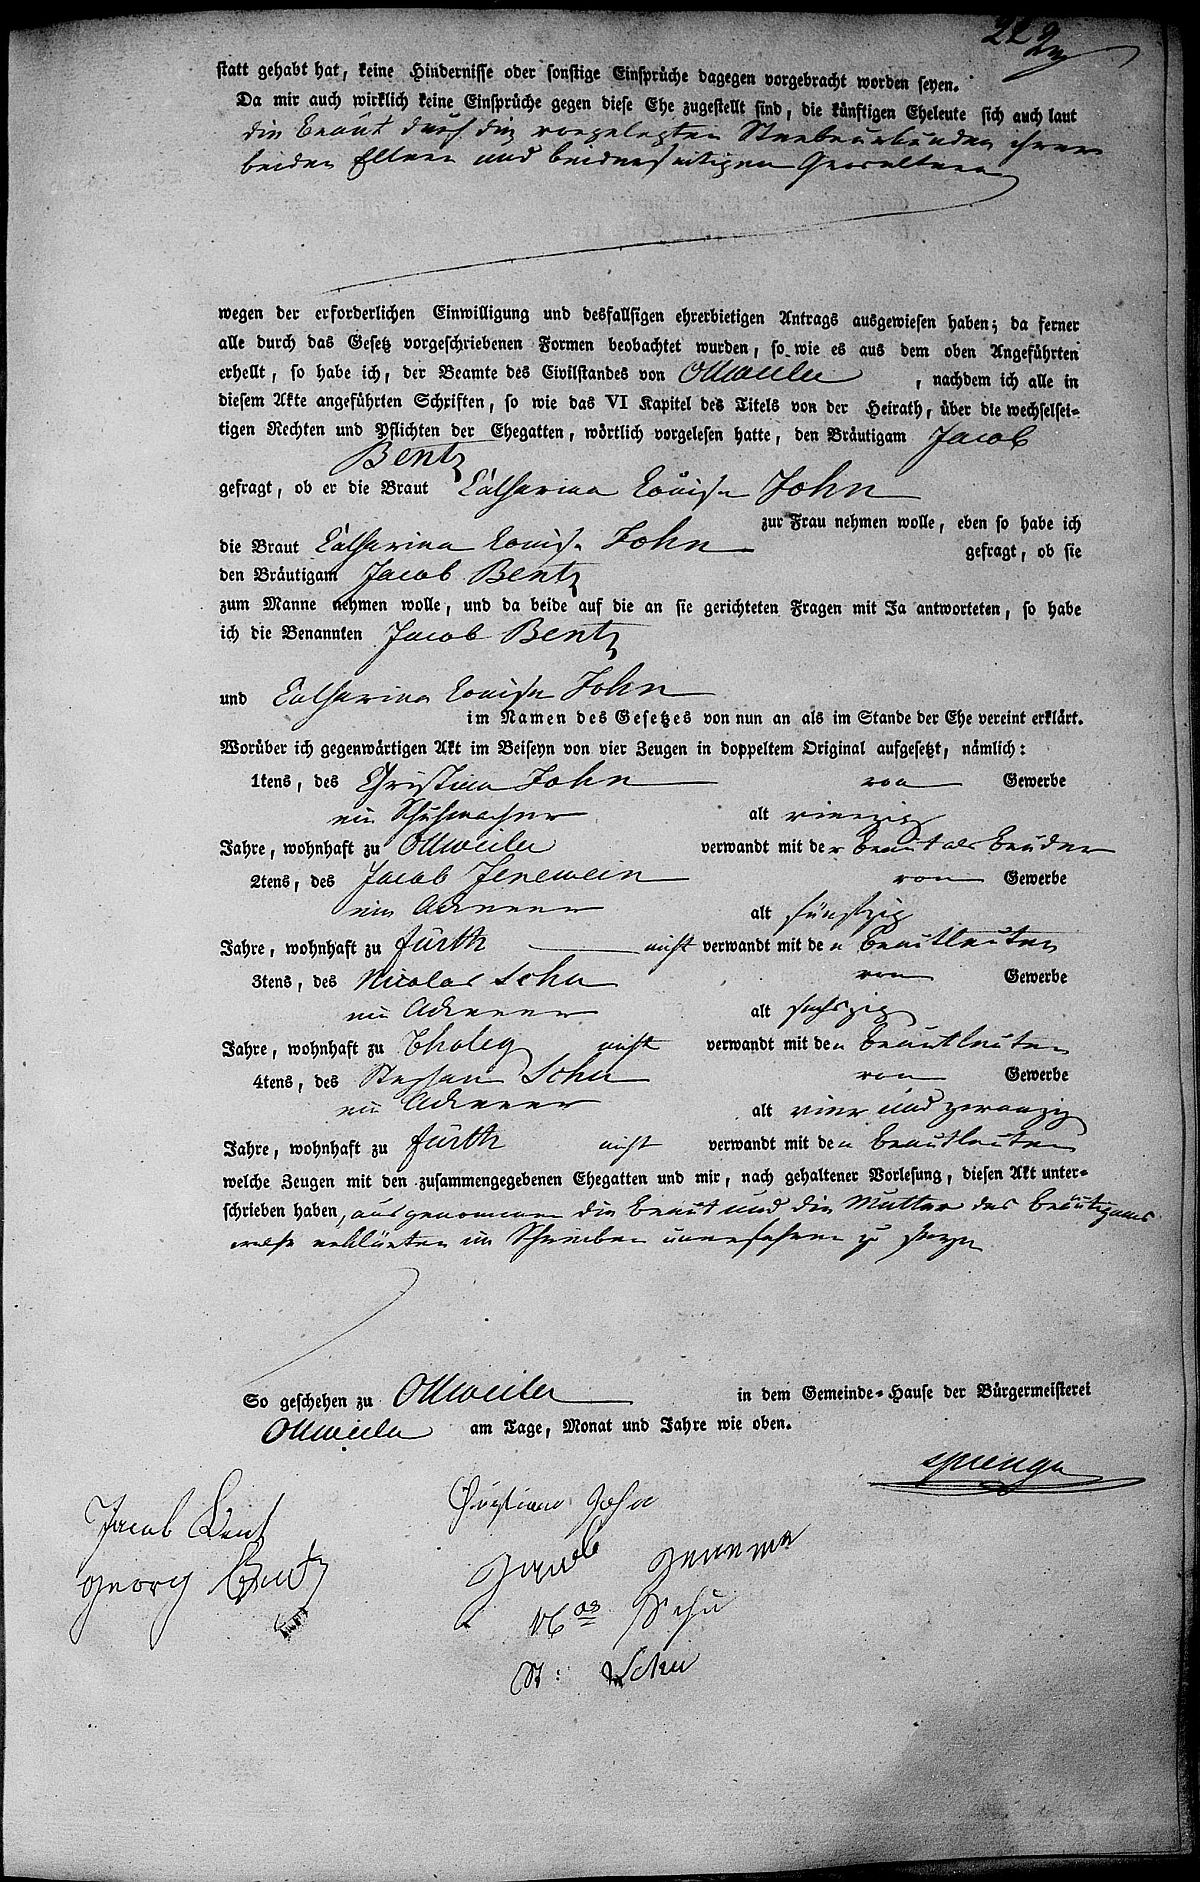 statt gehabt hat, keine Hindernisse oder sonstige Einsprüche dagegen vorgebracht worden seyen.
Da mir auch wirklich keine Einsprüche gegen diese Ehe zugestellt sind, die künftigen Eheleute sich auch laut
die Braut durch die vorgelegten Sterbeurkunden ihrer
beiden Eltern und beiderseitigen Groseltern
wegen der erforderlichen Einwilligung und desfallsigen ehrerbietigen Antrags ausgewiesen haben; da ferner
alle durch das Gesetz vorgeschriebenen Formen beobachtet wurden, so wie es aus dem oben Angeführten
erhellt, so habe ich, der Beamte des Civilstandes von Ottweiler, nachdem ich alle in
diesem Akte angeführten Schriften, so wie das VI Kapitel des Titels von der Heirath, über die wechselsei-
tigen Rechten und Pflichten der Ehegatten, wörtlich vorgelesen hatte, den Bräutigam Jacob
Bentz
gefragt, ob er die Braut Catharina Louisa John
zur Frau nehmen wolle, eben so habe ich
die Braut Catharina Louisa John gefragt, ob sie
den Bräutigam Jacob Bentz
zum Manne nehmen wolle, und da beide auf die an sie gerichteten Fragen mit Ja antworteten, so habe
ich die Benannten Jacob Bentz
und Catharina Louisa John
im Namen des Gesetzes von nun an als im Stande der Ehe vereint erklärt.
Worüber ich gegenwärtigen Akt im Beiseyn von vier Zeugen in doppeltem Original aufgesetzt, nämlich:
1tens, des Christian John von Gewerbe
ein Schuhmacher alt vierzig
Jahre, wohnhaft zu Ottweiler verwandt mit der Braut als Bruder
2tens, des Jacob Jenewein von Gewerbe
ein Ackerer alt fünfzig
Jahre, wohnhaft zu Fürth nicht verwandt mit den Brautleuten
3tens, des Nicolas Schu von Gewerbe
ein Ackerer alt sechszig
Jahre, wohnhaft zu Tholey nicht verwandt mit den Brautleuten
4tens, des Stephan Schu von Gewerbe
ein Ackerer alt vier und zwanzig
Jahre, wohnhaft zu Fürth nicht verwandt mit den Brautleuten
welche Zeugen mit den zusammengegebenen Ehegatten und mir, nach gehaltener Vorlesung, diesen Akt unter-
schrieben haben, ausgenommen die Braut und die Mutter des Bräutigams
welche erklärten im Schreiben unerfahren zu seyn
So geschehen zu Ottweiler in dem Gemeinde-Hause der Bürgermeisterei
Ottweiler am Tage, Monat und Jahre wie oben.
Jacob Bentz
Christian John
Georg Bentz
Jacob
Nas Schu
St: Schu